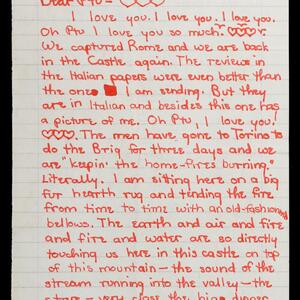 Dear Ptu —
I love you. I love you. I love you.
Oh Ptu I love you so much.
We captured Rome and we are back
in the Castle again. The reviews in
the Italian papers were even better than
the one I am sending. But they
are in Italian and besides this one has
a picture of me. Oh Ptu, I love you!
The men have gone to Torino to
do the Brig for three days and we
are "keepin' the home-fires burning."
Literally. I am sitting here on a big
fur hearth rug and tending the fire
from time to time with an old-fashioned
bellows. The earth and air and fire
and fire and water are so directly
touching us here in this castle on top
of this mountain — the sound of the
stream running into the valley — the
stars — very close the